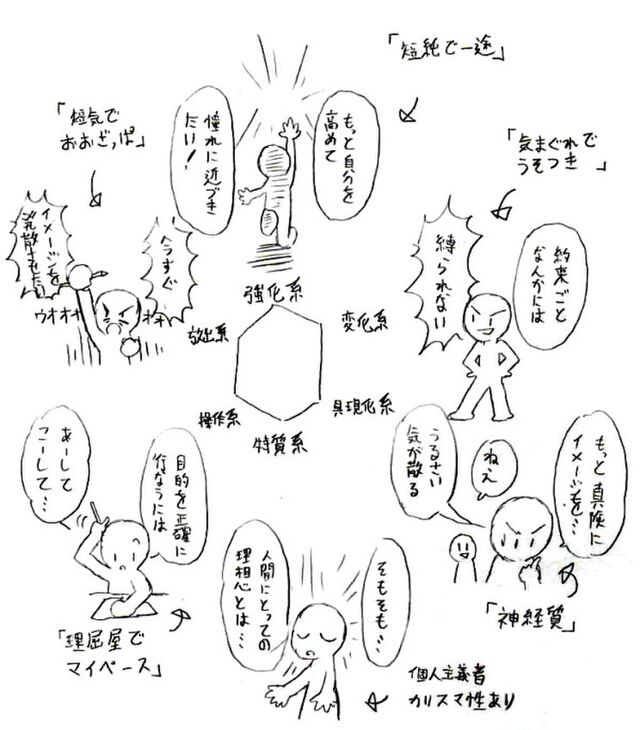 「短純で一途」
もっと自分を
高めて
憧れに近づき
たい！
「短気で
おおざっぱ」
「気まぐれで
うそつき」
今すぐ
イメージを
発散させたい
ウオオオ
オオ
約束ごと
なんかには
縛られない
強化系
放出系
変化系
操作系
具現化系
特質系
あーして
こーして…
目的を正確に
行なうには
「理屈屋で
マイペース」
もっと真険に
イメージを…
ねえ
うるさい
気が散る
「神経質」
そもそも…
人間にとっての
理想心とは…
個人主義者
カリスマ性あり